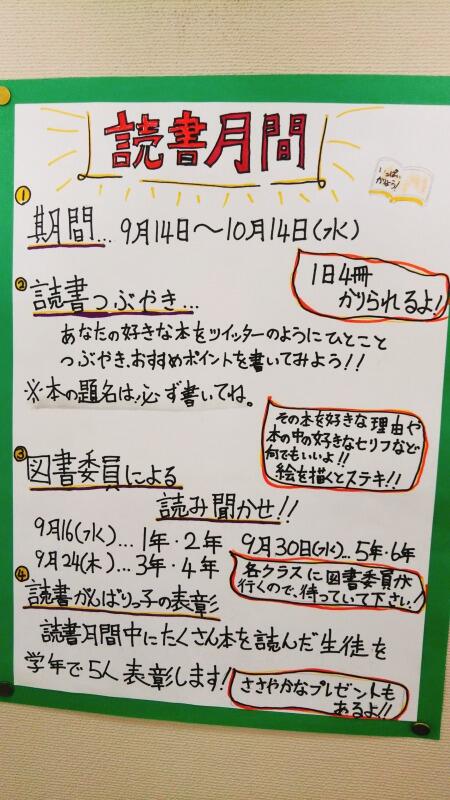 読書月間
いっぱい
かりよう!
① 期間… 9月14日〜10月14日(水)
1日4冊
かりられるよ!
② 読書つぶやき…
あなたの好きな本をツイッターのようにひとこと
つぶやき、おすすめポイントを書いてみよう!!
※本の題名は必ず書いてね。
その本を好きな理由や
本の中の好きなセリフなど
何でもいいよ!!
絵を描くとステキ!!
③ 図書委員による
読み聞かせ!!
9月16(水)…1年・2年 9月30日(水)…5年・6年
9月24(木)…3年・4年
各クラスに図書委員が
行くので、待っていて下さい!
④ 読書がんばりっ子の表彰
読書月間中にたくさん本を読んだ生徒を
学年で5人表彰します!
ささやかなプレゼントも
あるよ!!